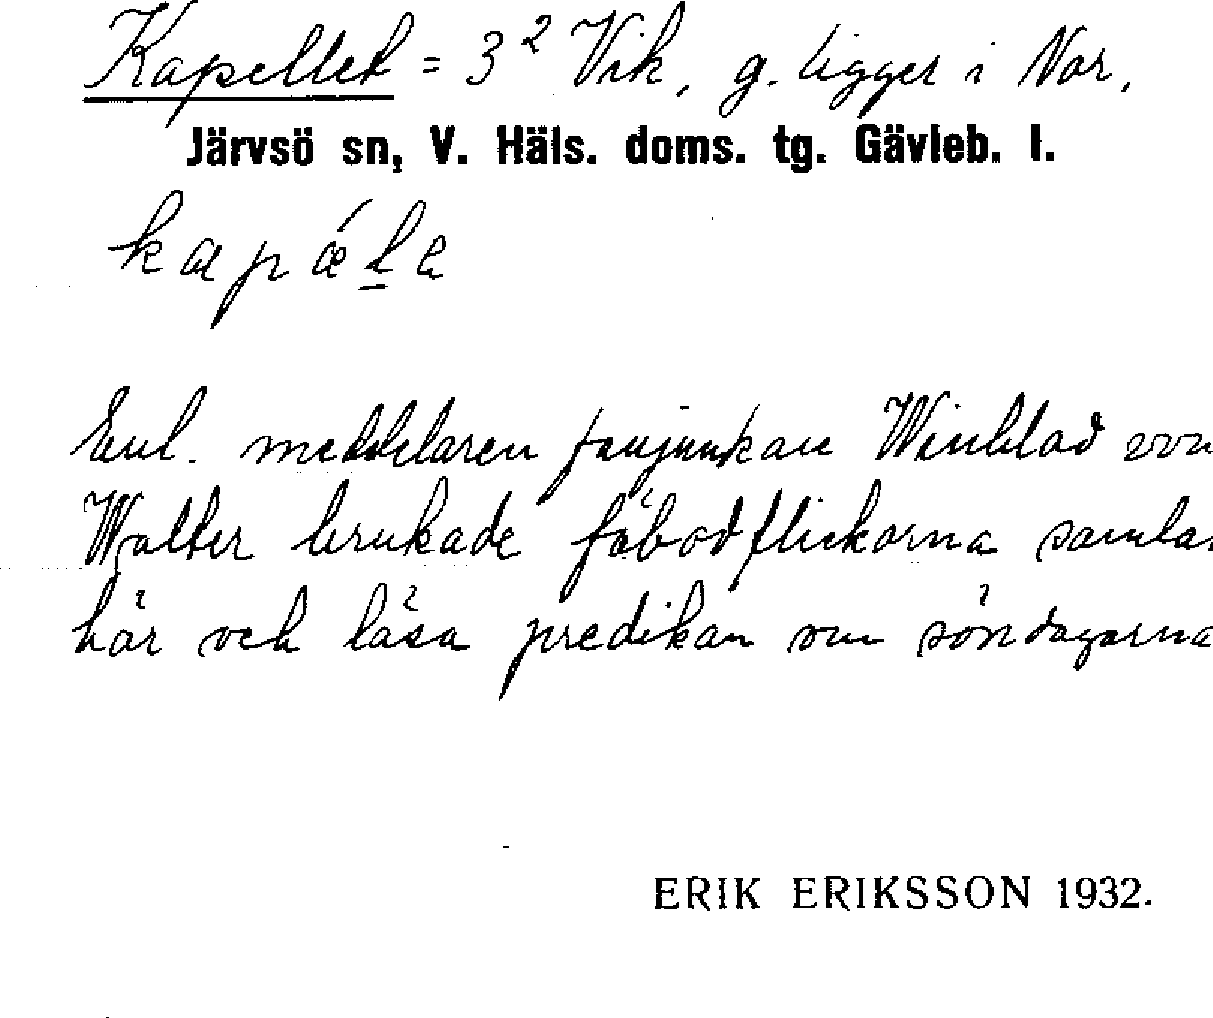 Kapellet = 3² Vik, g. ligger i Nor,
Järvsö sn, V. Häls. doms. tg. Gävleb. l.
kapǽle
Enl. meddelaren fanjunkare Winblad von
Walter brukade fäbodflickorna samlas
här och läsa predikan om söndagarna
ERIK ERIKSSON 1932.